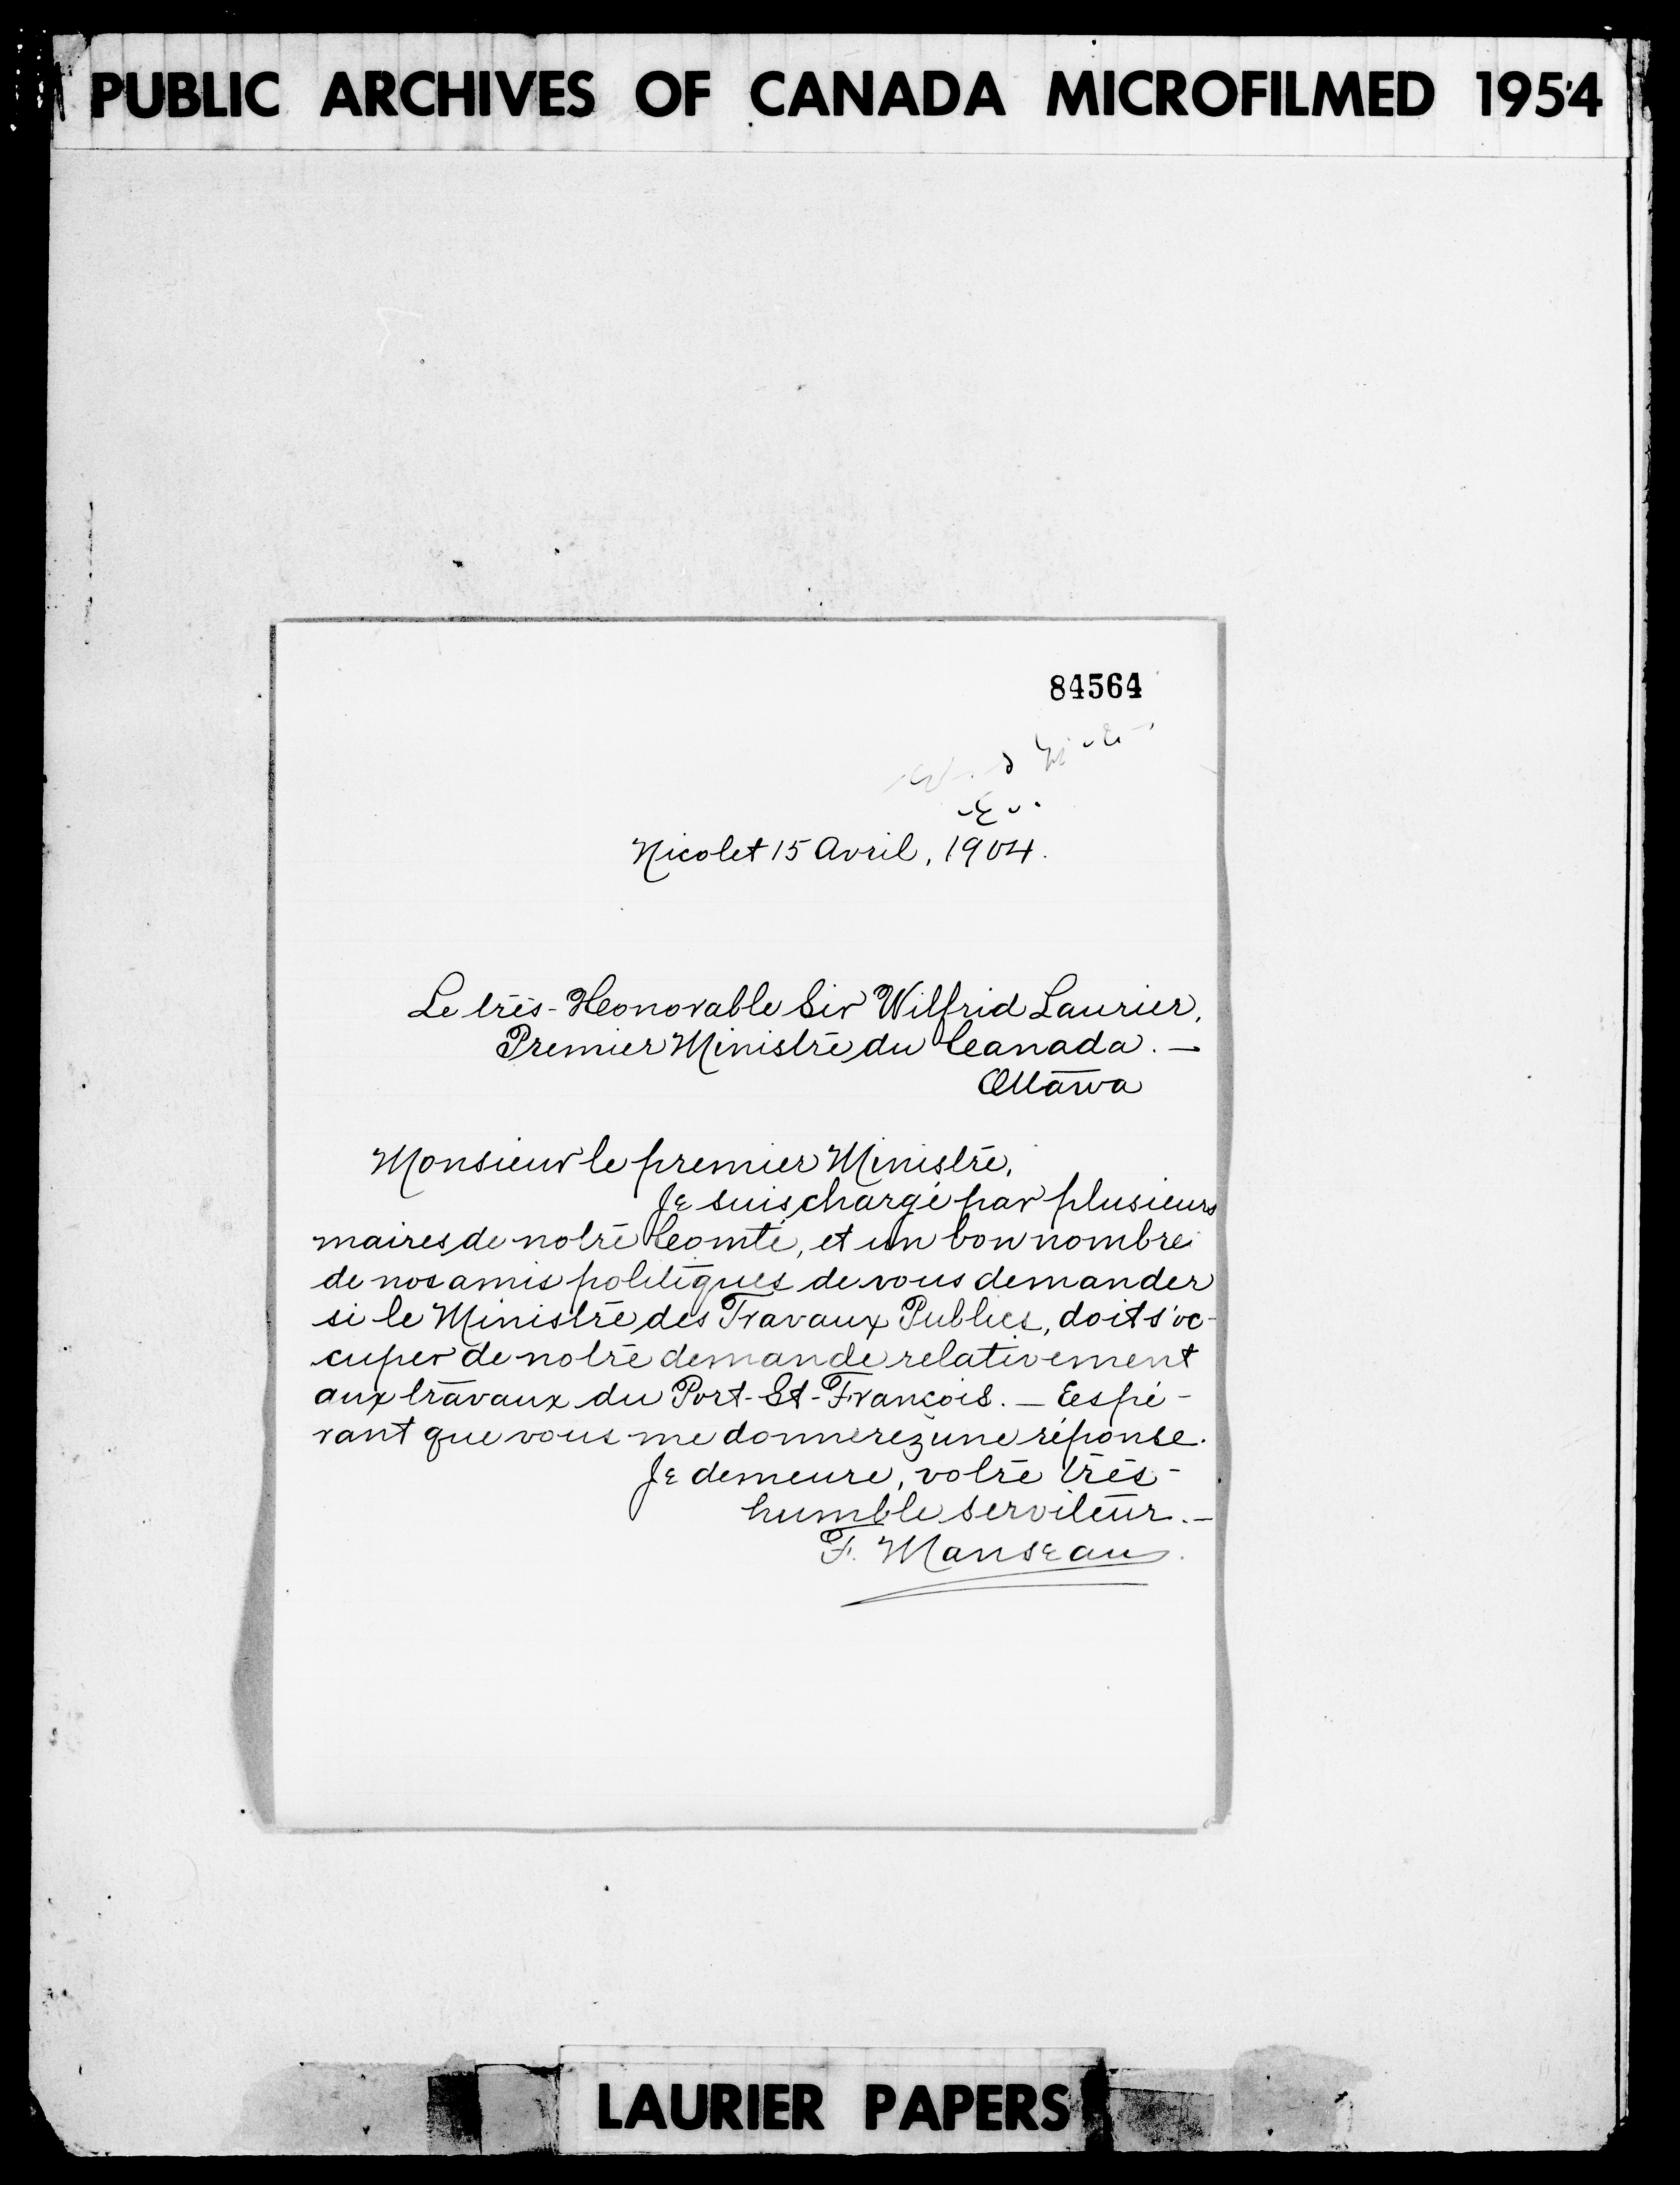 PUBLIC ARCHIVES OF CANADA MICROFILMED 1954
84564
Nicolet 15 Avril, 1904.
Le très-Honorable Sir Wilfrid Laurier,
Premier Ministre du Canada. —
Ottawa
Monsieur le premier Ministre,
Je suis chargé par plusieurs
maires de notre Comté, et un bon nombre
de nos amis politiques de vous demander
si le Ministre des Travaux Publics, doit s'oc-
cuper de notre demande relativement
aux travaux du Port-St-François. — Espé-
rant que vous me donnerez une réponse.
Je demeure, votre très-
humble serviteur. —
F. Manseau.
LAURIER PAPERS